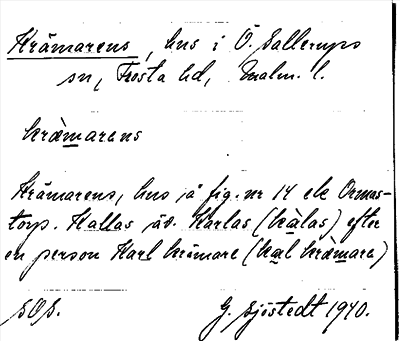 Krämarens, hus i Ö. Sallerups
sn, Frosta hd, Malm. l.
kràmarens
Krämarens, hus på fig. nr 14 ek Ormas-
torp. Kallas äv. Karlas (kàlas) efter
en person Karl krämare (kal kràmare)
SOS. G. Sjöstedt 1970.